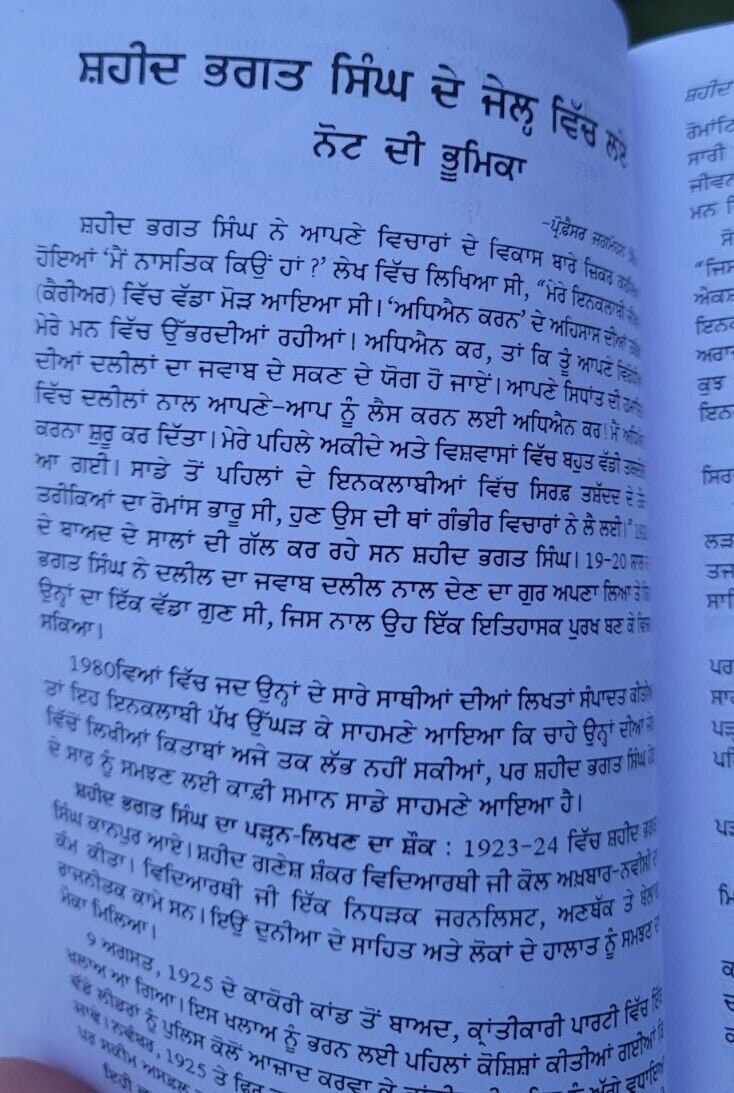 ਸ਼ਹੀਦ ਭਗਤ ਸਿੰਘ ਦੇ ਜੇਲ੍ਹ ਵਿੱਚ ਲਏ
ਨੋਟ ਦੀ ਭੂਮਿਕਾ
-ਪ੍ਰੋਫ਼ੈਸਰ ਜਗਮੋਹਨ
ਸ਼ਹੀਦ ਭਗਤ ਸਿੰਘ ਨੇ ਆਪਣੇ ਵਿਚਾਰਾਂ ਦੇ ਵਿਕਾਸ ਬਾਰੇ ਜ਼ਿਕਰ
ਹੋਇਆਂ ‘ਮੈਂ ਨਾਸਤਿਕ ਕਿਉਂ ਹਾਂ ?’ ਲੇਖ ਵਿੱਚ ਲਿਖਿਆ ਸੀ, “ਮੇਰੇ ਇਨਕਲਾਬੀ
(ਕੈਰੀਅਰ) ਵਿੱਚ ਵੱਡਾ ਮੋੜ ਆਇਆ ਸੀ। ‘ਅਧਿਐਨ ਕਰਨ’ ਦੇ ਅਹਿਸਾਸ ਦੀਆਂ
ਮੇਰੇ ਮਨ ਵਿੱਚ ਉੱਭਰਦੀਆਂ ਰਹੀਆਂ। ਅਧਿਐਨ ਕਰ, ਤਾਂ ਕਿ ਤੂੰ ਆਪਣੇ
ਦੀਆਂ ਦਲੀਲਾਂ ਦਾ ਜਵਾਬ ਦੇ ਸਕਣ ਦੇ ਯੋਗ ਹੋ ਜਾਏਂ। ਆਪਣੇ ਸਿਧਾਂਤ ਦੀ
ਵਿੱਚ ਦਲੀਲਾਂ ਨਾਲ ਆਪਣੇ-ਆਪ ਨੂੰ ਲੈਸ ਕਰਨ ਲਈ ਅਧਿਐਨ ਕਰ! ਮੈਂ
ਕਰਨਾ ਸ਼ੁਰੂ ਕਰ ਦਿੱਤਾ। ਮੇਰੇ ਪਹਿਲੇ ਅਕੀਦੇ ਅਤੇ ਵਿਸ਼ਵਾਸਾਂ ਵਿੱਚ ਬਹੁਤ ਵੱਡੀ
ਆ ਗਈ। ਸਾਡੇ ਤੋਂ ਪਹਿਲਾਂ ਦੇ ਇਨਕਲਾਬੀਆਂ ਵਿੱਚ ਸਿਰਫ਼ ਤਸ਼ੱਦਦ ਦੇ
ਤਰੀਕਿਆਂ ਦਾ ਰੋਮਾਂਸ ਭਾਰੂ ਸੀ, ਹੁਣ ਉਸ ਦੀ ਥਾਂ ਗੰਭੀਰ ਵਿਚਾਰਾਂ ਨੇ ਲੈ ਲਈ।”
ਦੇ ਬਾਅਦ ਦੇ ਸਾਲਾਂ ਦੀ ਗੱਲ ਕਰ ਰਹੇ ਸਨ ਸ਼ਹੀਦ ਭਗਤ ਸਿੰਘ। 19-20
ਭਗਤ ਸਿੰਘ ਨੇ ਦਲੀਲ ਦਾ ਜਵਾਬ ਦਲੀਲ ਨਾਲ ਦੇਣ ਦਾ ਗੁਰ ਅਪਣਾ ਲਿਆ ਤੇ
ਉਨ੍ਹਾਂ ਦਾ ਇੱਕ ਵੱਡਾ ਗੁਣ ਸੀ, ਜਿਸ ਨਾਲ ਉਹ ਇੱਕ ਇਤਿਹਾਸਕ ਪੁਰਖ ਬਣ ਕੇ
ਸਕਿਆ।
1980ਵਿਆਂ ਵਿੱਚ ਜਦ ਉਨ੍ਹਾਂ ਦੇ ਸਾਰੇ ਸਾਥੀਆਂ ਦੀਆਂ ਲਿਖਤਾਂ ਸੰਪਾਦਤ
ਤਾਂ ਇਹ ਇਨਕਲਾਬੀ ਪੱਖ ਉੱਘੜ ਕੇ ਸਾਹਮਣੇ ਆਇਆ ਕਿ ਚਾਹੇ ਉਨ੍ਹਾਂ ਦੀਆਂ
ਵਿੱਚੋਂ ਲਿਖੀਆਂ ਕਿਤਾਬਾਂ ਅਜੇ ਤਕ ਲੱਭ ਨਹੀਂ ਸਕੀਆਂ, ਪਰ ਸ਼ਹੀਦ ਭਗਤ ਸਿੰਘ
ਦੇ ਸਾਰ ਨੂੰ ਸਮਝਣ ਲਈ ਕਾਫ਼ੀ ਸਮਾਨ ਸਾਡੇ ਸਾਹਮਣੇ ਆਇਆ ਹੈ।
ਸ਼ਹੀਦ ਭਗਤ ਸਿੰਘ ਦਾ ਪੜ੍ਹਨ-ਲਿਖਣ ਦਾ ਸ਼ੌਕ : 1923-24 ਵਿੱਚ ਸ਼ਹੀਦ ਭਗਤ
ਸਿੰਘ ਕਾਨਪੁਰ ਆਏ। ਸ਼ਹੀਦ ਗਣੇਸ਼ ਸ਼ੰਕਰ ਵਿਦਿਆਰਥੀ ਜੀ ਕੋਲ ਅਖ਼ਬਾਰ-ਨਵੀਸੀ ਦਾ
ਕੰਮ ਕੀਤਾ। ਵਿਦਿਆਰਥੀ ਜੀ ਇੱਕ ਨਿਧੜਕ ਜਰਨਲਿਸਟ, ਅਣਥੱਕ ਤੇ
ਰਾਜਨੀਤਕ ਕਾਮੇ ਸਨ। ਇਉਂ ਦੁਨੀਆ ਦੇ ਸਾਹਿਤ ਅਤੇ ਲੋਕਾਂ ਦੇ ਹਾਲਾਤ ਨੂੰ ਸਮਝਣ ਦਾ
ਮੌਕਾ ਮਿਲਿਆ।
9 ਅਗਸਤ, 1925 ਦੇ ਕਾਕੋਰੀ ਕਾਂਡ ਤੋਂ ਬਾਅਦ, ਕ੍ਰਾਂਤੀਕਾਰੀ ਪਾਰਟੀ ਵਿੱਚ ਇੱਕ
ਖਲਾਅ ਆ ਗਿਆ। ਇਸ ਖਲਾਅ ਨੂੰ ਭਰਨ ਲਈ ਪਹਿਲਾਂ ਕੋਸ਼ਿਸ਼ਾਂ ਕੀਤੀਆਂ ਗਈਆਂ ਕਿ
ਵੱਡੇ ਲੀਡਰਾਂ ਨੂੰ ਪੁਲਿਸ ਕੋਲੋਂ ਆਜ਼ਾਦ ਕਰਵਾ ਕੇ ਨੂੰ ਅੱਗੇ ਵਧਾਇਆ
ਜਾਵੇ। ਨਵੰਬਰ, 1925 ਤੇ ਫਿਰ
ਪਰ ਸਕੀਮ ਅਸਫ਼ਲ
ਇਹੀ
ਸ਼ਹੀਦ
ਸਾਰੀ
ਜੀਵਨ
ਮਨ
“ਜਿਸ
ਕੁਝ